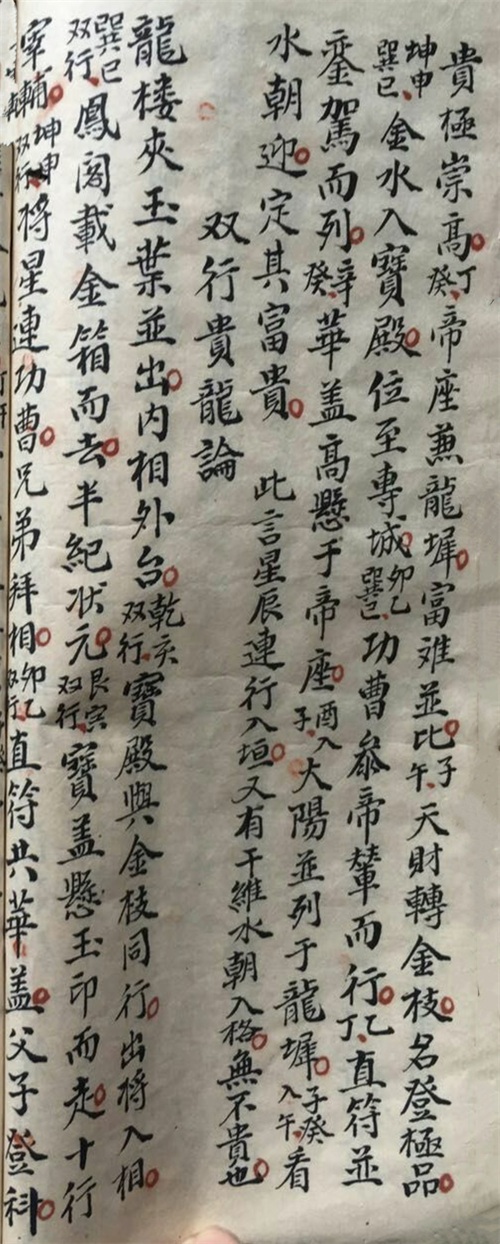 貴極崇高丁癸帝座兼龍墀富难並比子午天財轉金枝名登極品
坤申巽巳金水入寶殿位至專城卯乙巽巳功曹叅帝輦而行乙丁直符並
鑾駕而列辛癸華盖高懸于帝座酉入子大陽並列于龍墀子癸入午看
水朝迎定其富貴 此言星辰連行入垣又有干維水朝入格無不貴也
双行貴龍論
龍楼夾玉葉並出内相外台乾亥双行寶殿與金枝同行出將入相
巽巳双行鳳阁載金箱而去半紀状元艮寅双行寶盖懸玉印而走十行
宰輔坤申双行將星連功曹兄弟拜相卯乙双行直符共華盖父子登科